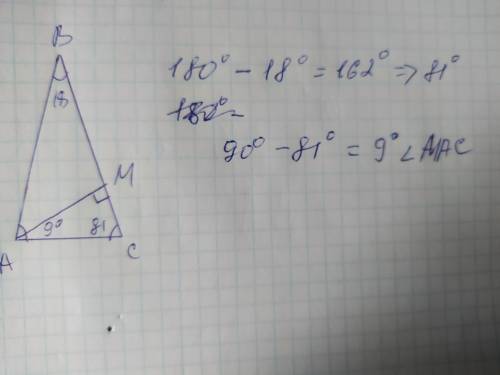 B
18
M
9°
81
A
C
180° - 18° = 162° => 81°
180° -
90° - 81° = 9° ∠ MAC